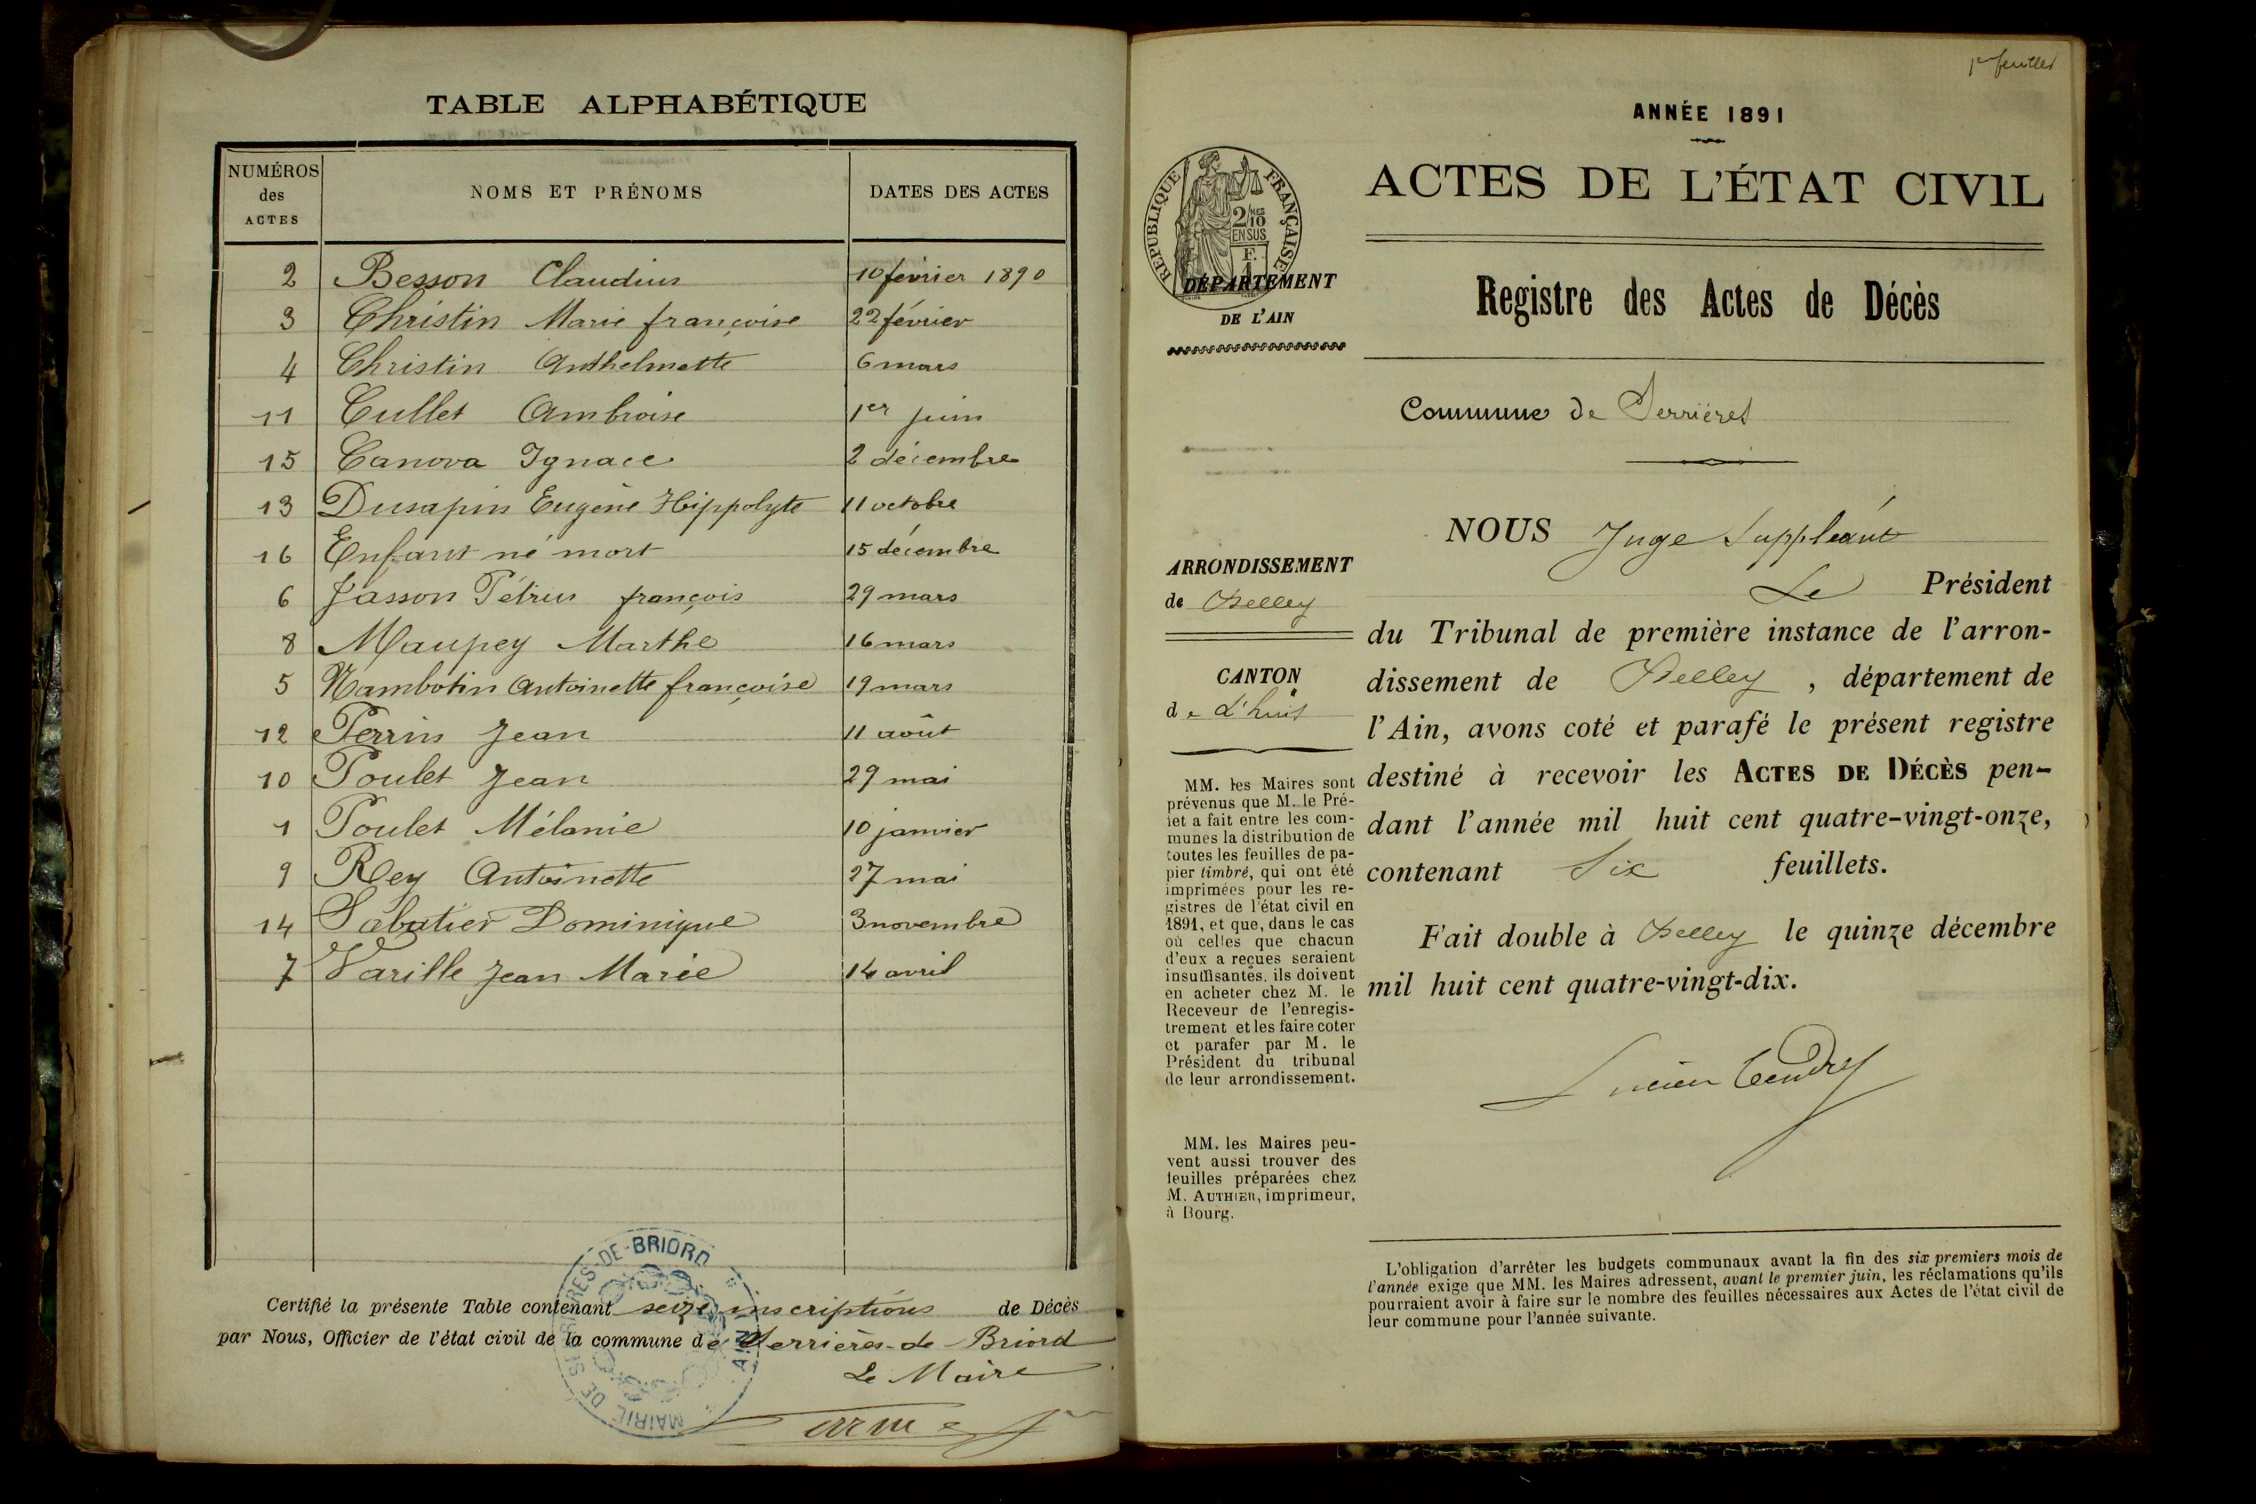 TABLE ALPHABÉTIQUE
NUMÉROS des ACTES NOMS ET PRÉNOMS DATES DES ACTES
2 Besson Claudius 10 février 1890
3 Christin Marie françoise 22 février
4 Christin Anthelmette 6 mars
11 Cullet Ambroise 1er juin
15 Canova Ignace 2 décembre
13 Dusapin Eugène Hippolyte 11 octobre
16 Enfant né mort 15 décembre
6 Jasson Pétrus françois 29 mars
8 Maupey Marthe 16 mars
5 Nambotin Antoinette françoise 19 mars
12 Perrin Jean 11 août
10 Poulet Jean 29 mai
1 Poulet Mélanie 10 janvier
9 Rey Antoinette 27 mai
14 Sabatier Dominique 3 novembre
7 Varille Jean Marie 14 avril
Certifié la présente Table contenant seize inscriptions de Décès
par Nous, Officier de l'état civil de la commune de Serrières-de Briord
Le Maire
MAIRIE DE SERRIÈRES-DE-BRIORD
AIN
1er feuillet
ANNÉE 1891
ACTES DE L'ÉTAT CIVIL
RÉPUBLIQUE FRANÇAISE
2/10 MES
EN SUS
F.
1
DÉPARTEMENT
DE L'AIN
Registre des Actes de Décès
Commune de Serrières
ARRONDISSEMENT
de Belley
CANTON
de L'huis
MM. les Maires sont
prévenus que M. le Pré-
fet a fait entre les com-
munes la distribution de
toutes les feuilles de pa-
pier timbré, qui ont été
imprimées pour les re-
gistres de l'état civil en
1891, et que, dans le cas
où celles que chacun
d'eux a reçues seraient
insuffisantes, ils doivent
en acheter chez M. le
Receveur de l'enregis-
trement et les faire coter
et parafer par M. le
Président du tribunal
de leur arrondissement.
MM. les Maires peu-
vent aussi trouver des
feuilles préparées chez
M. AUTHIER, imprimeur,
à Bourg.
NOUS Juge Suppléant
Le Président
du Tribunal de première instance de l'arron-
dissement de Belley, département de
l'Ain, avons coté et parafé le présent registre
destiné à recevoir les ACTES DE DÉCÈS pen-
dant l'année mil huit cent quatre-vingt-onze,
contenant Six feuillets.
Fait double à Belley le quinze décembre
mil huit cent quatre-vingt-dix.
Lucien Tendret
L'obligation d'arrêter les budgets communaux avant la fin des six premiers mois de
l'année exige que MM. les Maires adressent, avant le premier juin, les réclamations qu'ils
pourraient avoir à faire sur le nombre des feuilles nécessaires aux Actes de l'état civil de
leur commune pour l'année suivante.